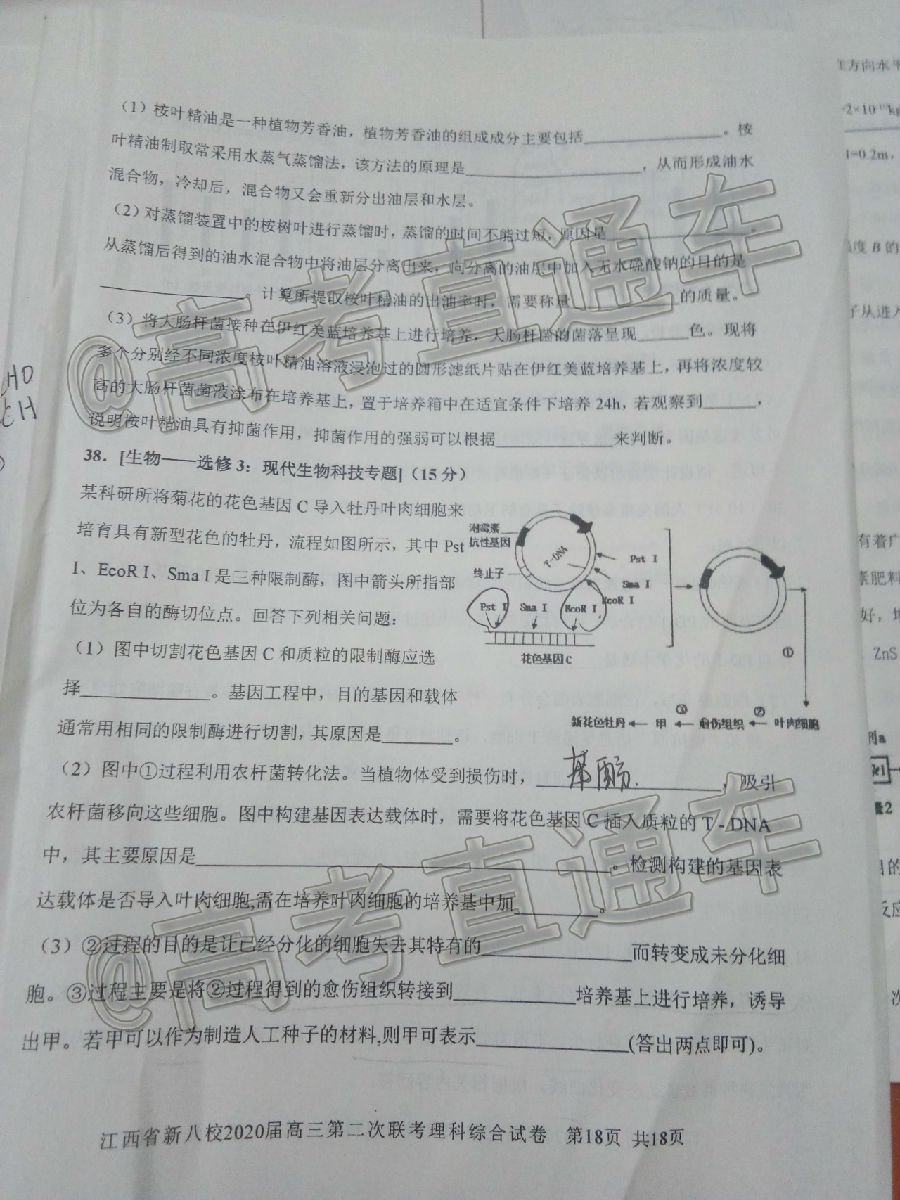 (1)桉叶精油是一种植物芳香油，植物芳香油的组成成分主要包括____________。桉
叶精油制取常采用水蒸气蒸馏法，该方法的原理是____________，从而形成油水
混合物，冷却后，混合物又会重新分出油层和水层。
(2)对蒸馏装置中的桉树叶进行蒸馏时，蒸馏的时间不能过短，原因是____________。
从蒸馏后得到的油水混合物中将油层分离出来，向分离的油层中加入无水硫酸钠的目的是
____________。计算所提取桉叶精油的出油率时，需要称量____________的质量。
(3)将大肠杆菌接种在伊红美蓝培养基上进行培养，大肠杆菌的菌落呈现______色。现将
多个分别经不同浓度桉叶精油溶液浸泡过的圆形滤纸片贴在伊红美蓝培养基上，再将浓度较
高的大肠杆菌菌液涂布在培养基上，置于培养箱中在适宜条件下培养24h，若观察到______，
说明桉叶精油具有抑菌作用，抑菌作用的强弱可以根据____________来判断。
38．[生物——选修3：现代生物科技专题]（15分）
某科研所将菊花的花色基因C导入牡丹叶肉细胞来
培育具有新型花色的牡丹，流程如图所示，其中Pst
I、EcoR I、Sma I是三种限制酶，图中箭头所指部
位为各自的酶切位点。回答下列相关问题：
(1)图中切割花色基因C和质粒的限制酶应选
择____________。基因工程中，目的基因和载体
通常用相同的限制酶进行切割，其原因是________。
潮霉素
抗性基因
T-DNA
终止子
Pst I
Sma I
EcoR I
Pst I Sma I EcoR I
花色基因C
①
新花色牡丹 ← 甲 ←③ 愈伤组织 ←② 叶肉细胞
(2)图中①过程利用农杆菌转化法。当植物体受到损伤时，____________，吸引
农杆菌移向这些细胞。图中构建基因表达载体时，需要将花色基因C插入质粒的T-DNA
中，其主要原因是____________。检测构建的基因表
达载体是否导入叶肉细胞,需在培养叶肉细胞的培养基中加________。
(3)②过程的目的是让已经分化的细胞失去其特有的____________而转变成未分化细
胞。③过程主要是将②过程得到的愈伤组织转接到____________培养基上进行培养，诱导
出甲。若甲可以作为制造人工种子的材料,则甲可表示____________(答出两点即可)。
江西省新八校2020届高三第二次联考理科综合试卷 第18页 共18页
@高考直通车
@高考直通车
HO
CH
方向水平
=0.2m，
度B的
子从进入
有着广
肥料
好，
ZnS
图a